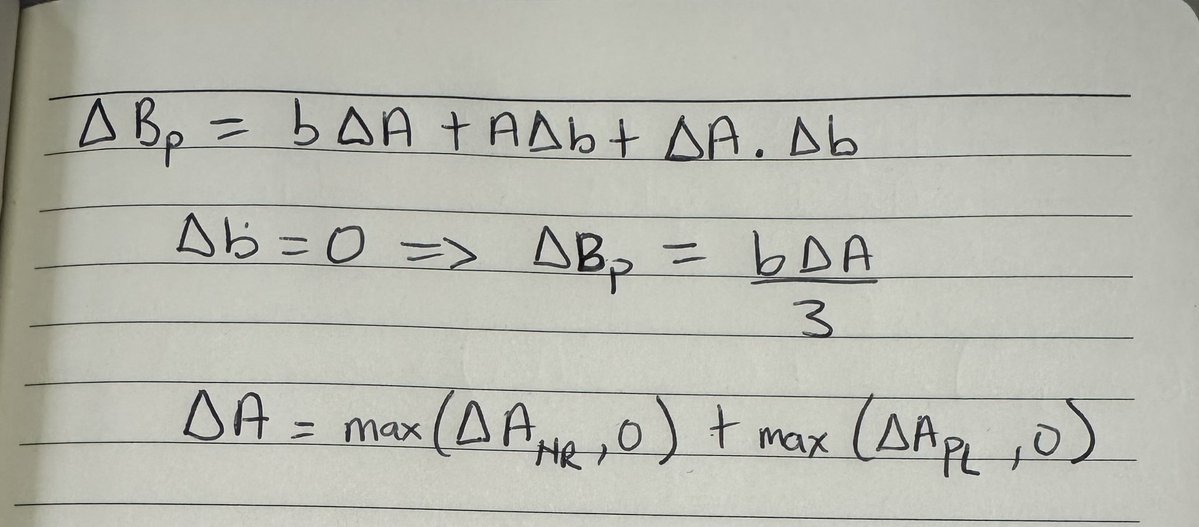 ΔBₚ = bΔA + AΔb + ΔA . Δb
Δb = 0 => ΔBₚ = bΔA
3
ΔA = max(ΔA_HR, 0) + max(ΔA_PL, 0)